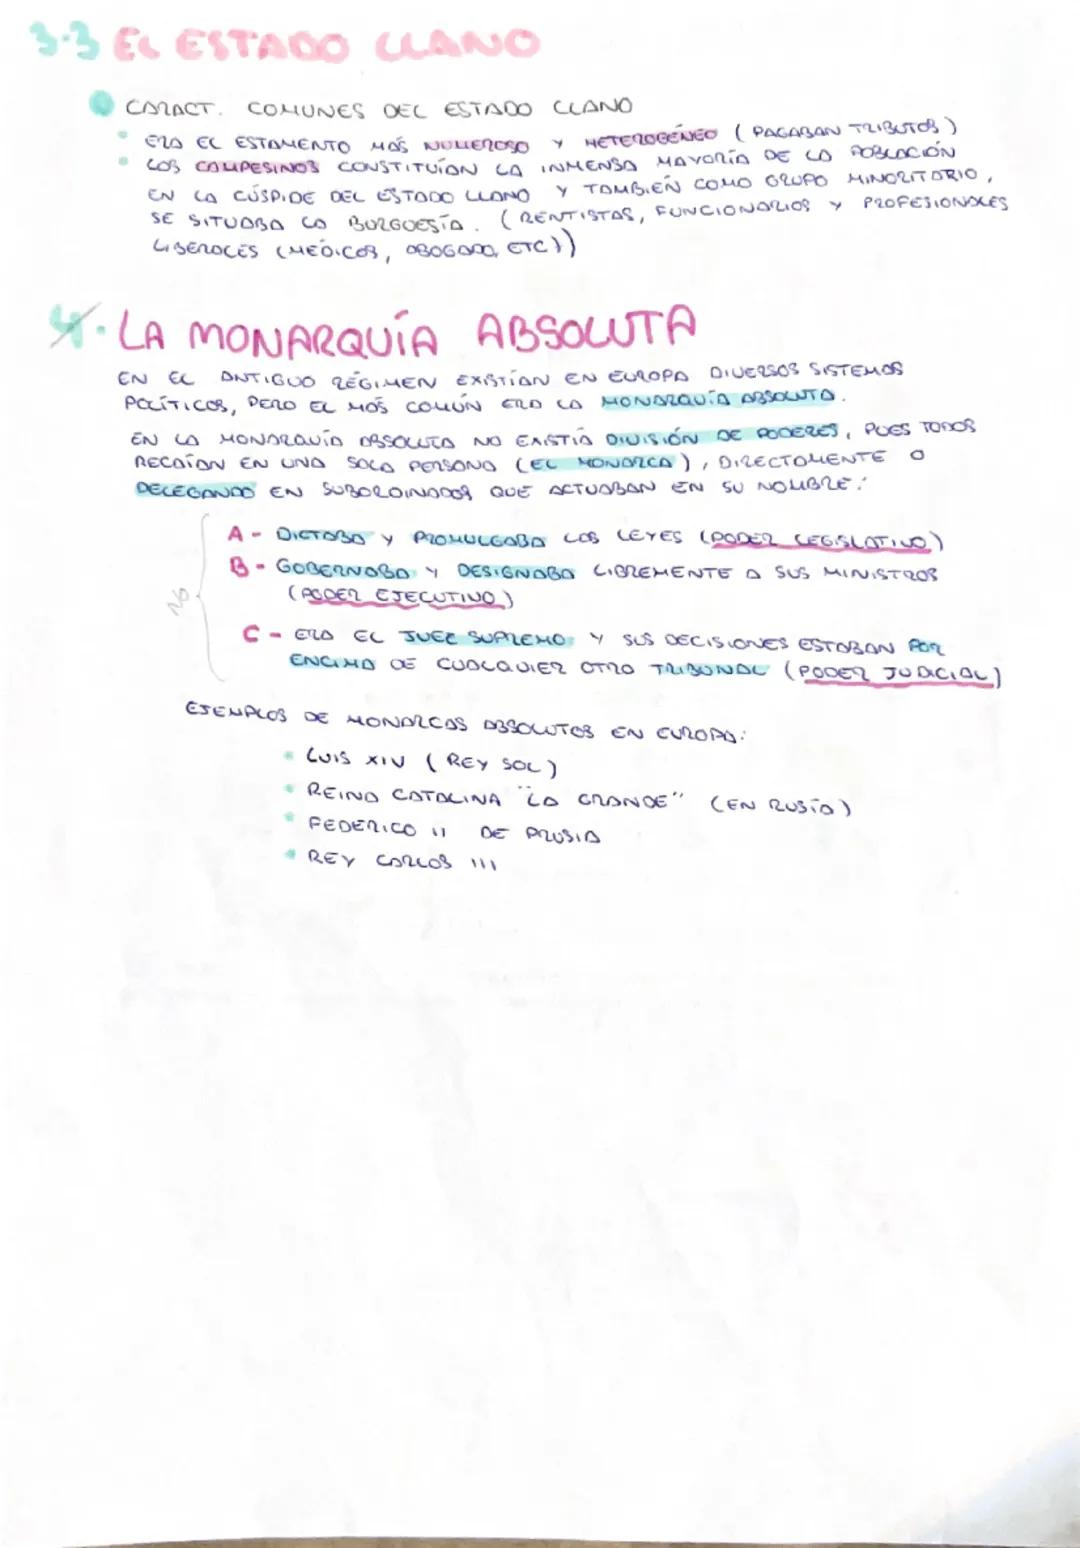 3.3 EL ESTADO LLANO
CARACT. COMUNES DEL ESTADO LLANO
ERA EL ESTAMENTO MÁS NUMEROSO Y HETEROGÉNEO (PAGABAN TRIBUTOS)
LOS CAMPESINOS CONSTITUÍAN LA INMENSA MAYORÍA DE LA POBLACIÓN
EN LA CÚSPIDE DEL ESTADO LLANO Y TAMBIÉN COMO GRUPO MINORITARIO,
SE SITUABA LA BURGUESÍA. (RENTISTAS, FUNCIONARIOS Y PROFESIONALES
LIBERALES (MÉDICOS, ABOGADO, ETC))
4. LA MONARQUÍA ABSOLUTA
EN EL ANTIGUO RÉGIMEN EXISTÍAN EN EUROPA DIVERSOS SISTEMAS
POLÍTICOS, PERO EL MÁS COMÚN ERA LA MONARQUÍA ABSOLUTA.
EN LA MONARQUÍA ABSOLUTA NO EXISTÍA DIVISIÓN DE PODERES, PUES TODOS
RECAÍAN EN UNA SOLA PERSONA (EL MONARCA), DIRECTAMENTE O
DELEGANDO EN SUBORDINADOS QUE ACTUABAN EN SU NOMBRE:
A - DICTABA Y PROMULGABA LAS LEYES (PODER LEGISLATIVO)
B - GOBERNABA Y DESIGNABA LIBREMENTE A SUS MINISTROS
(PODER EJECUTIVO)
NO
C - ERA EL JUEZ SUPREMO Y SUS DECISIONES ESTABAN POR
ENCIMA DE CUALQUIER OTRO TRIBUNAL (PODER JUDICIAL)
EJEMPLOS DE MONARCAS ABSOLUTOS EN EUROPA:
LUIS XIV (REY SOL)
REINA CATALINA "LA GRANDE" (EN RUSIA)
FEDERICO II DE PRUSIA
REY CARLOS III